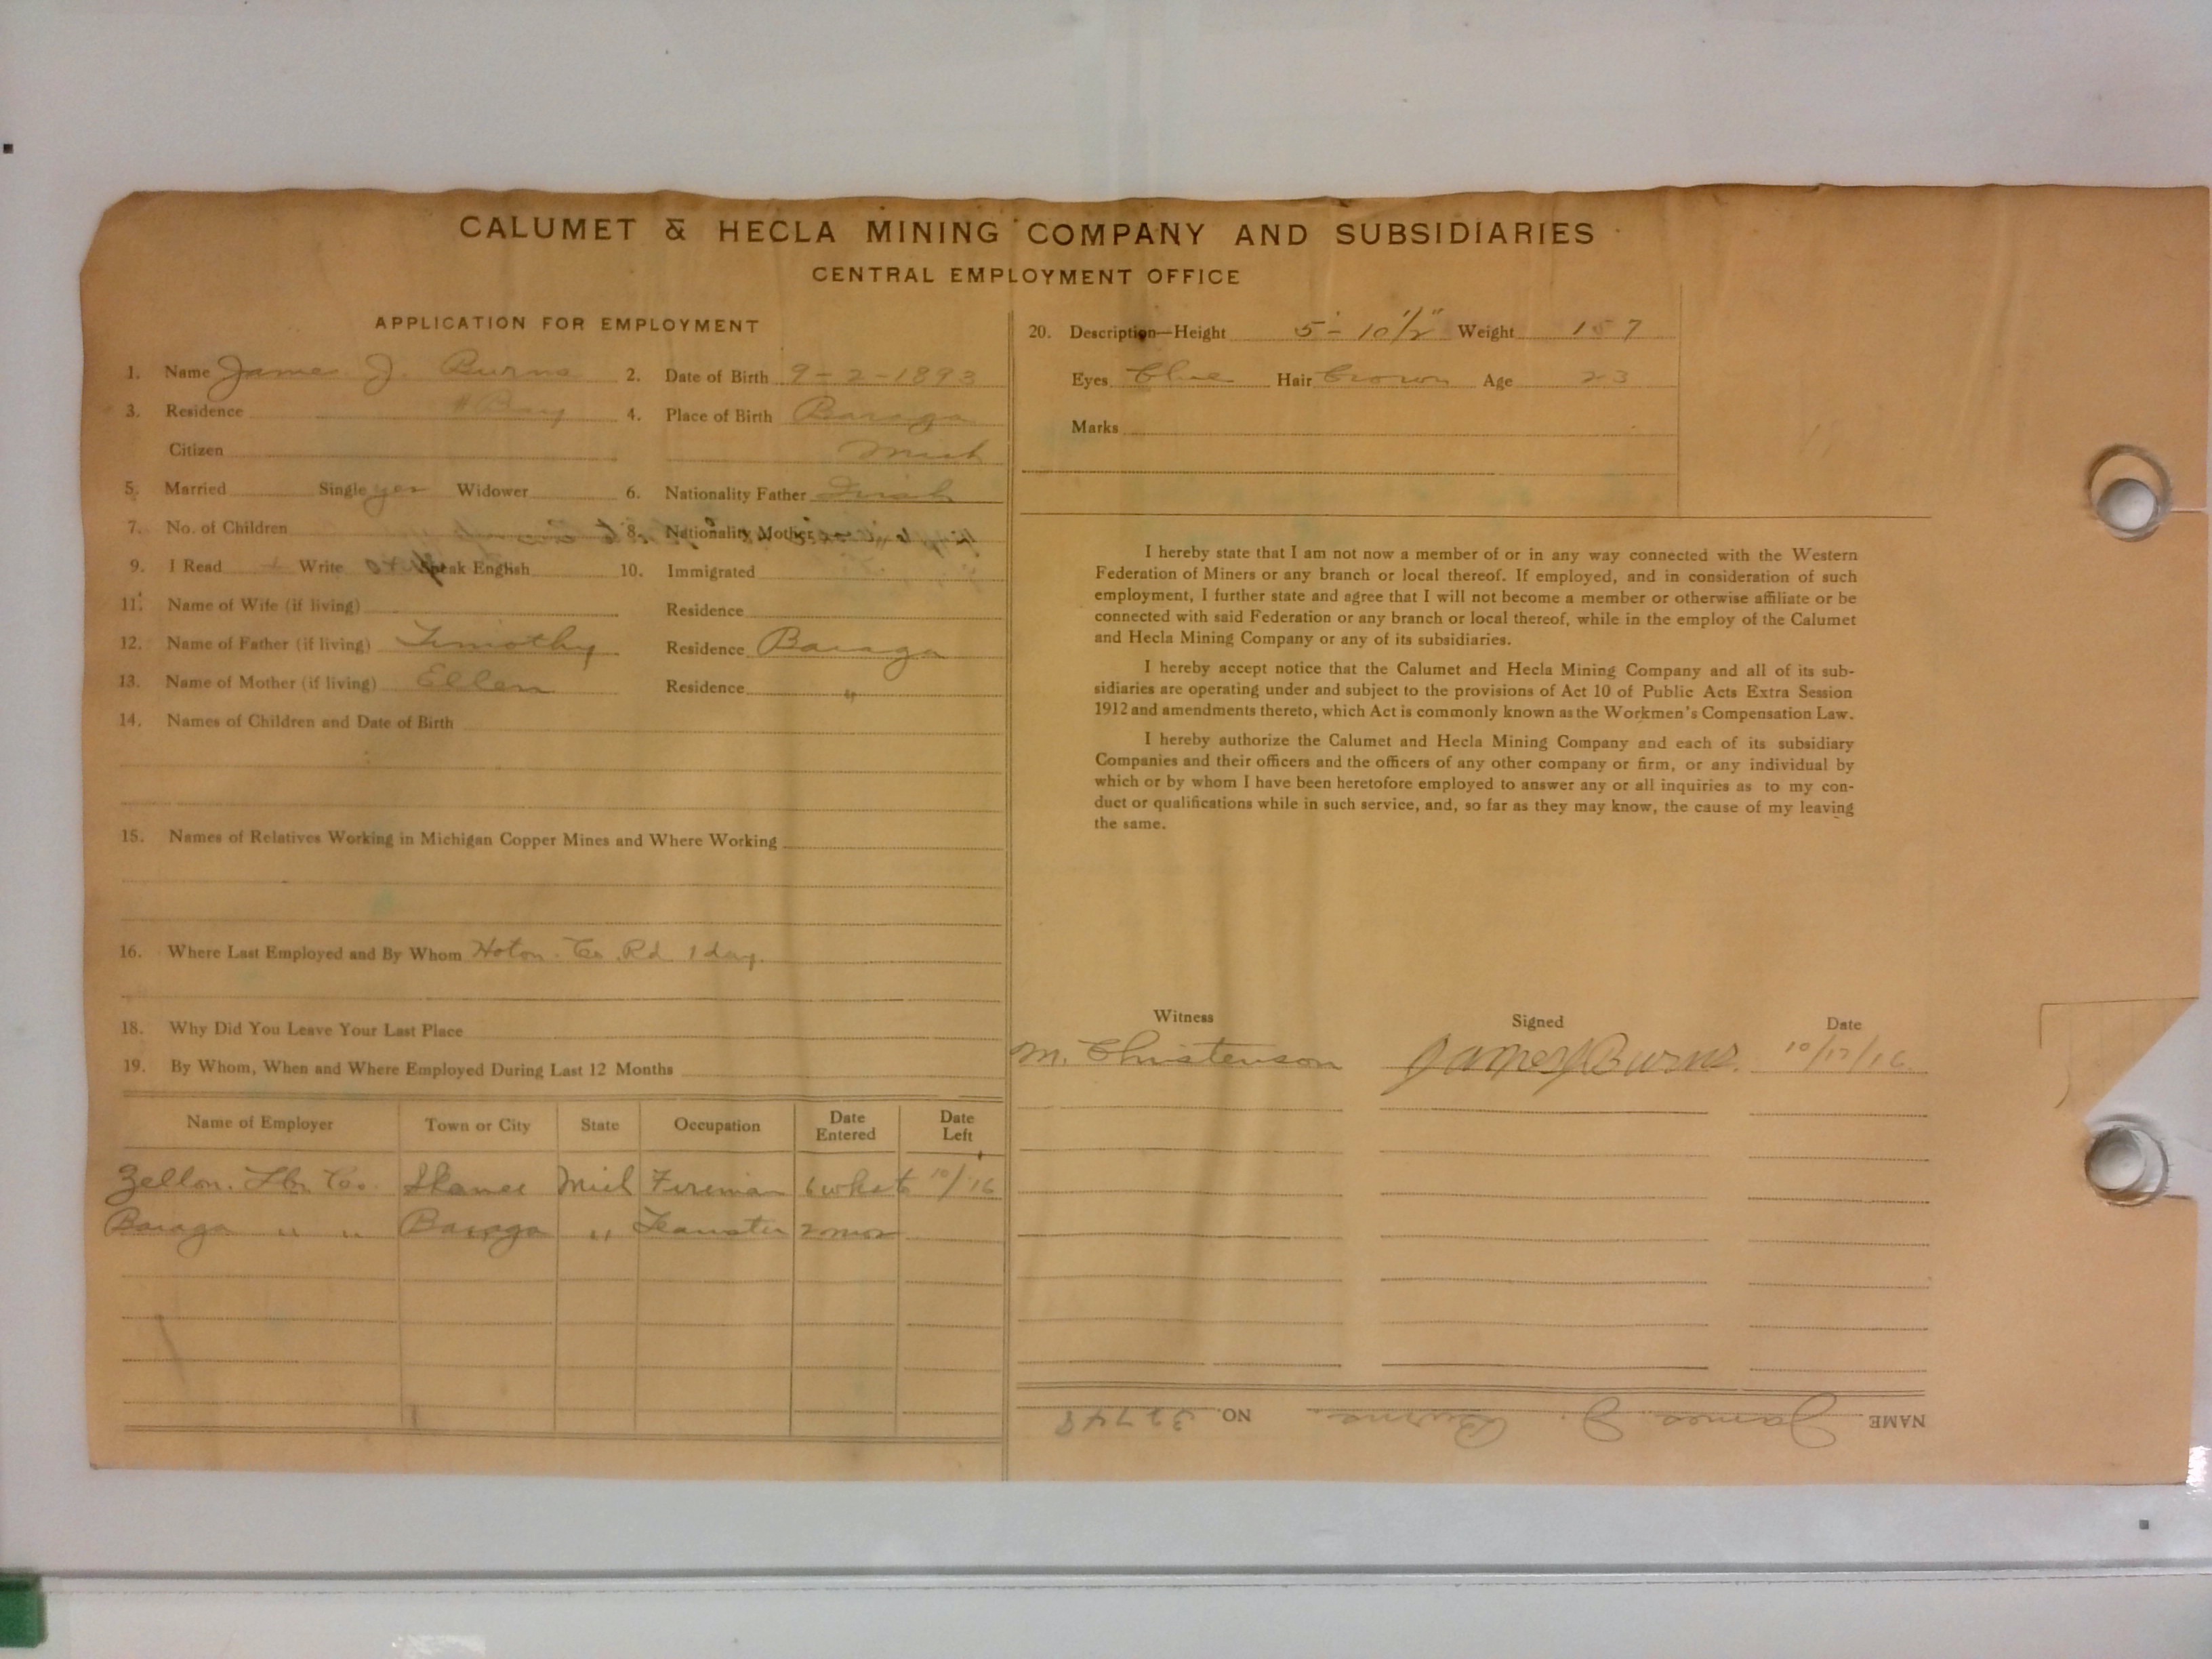 CALUMET & HECLA MINING COMPANY AND SUBSIDIARIES
CENTRAL EMPLOYMENT OFFICE
APPLICATION FOR EMPLOYMENT
1. Name James J. Burns 2. Date of Birth 9-2-1893
3. Residence Bay 4. Place of Birth Baraga
Citizen Mich
5. Married Single yes Widower 6. Nationality Father Irish
7. No. of Children 8. Nationality Mother
9. I Read Write Speak English 10. Immigrated
11. Name of Wife (if living) Residence
12. Name of Father (if living) Timothy Residence Baraga
13. Name of Mother (if living) Ellen Residence "
14. Names of Children and Date of Birth
15. Names of Relatives Working in Michigan Copper Mines and Where Working
16. Where Last Employed and By Whom Hoton. Co. Rd. 1 day.
18. Why Did You Leave Your Last Place
19. By Whom, When and Where Employed During Last 12 Months
Name of Employer Town or City State Occupation Date Entered Date Left
Zellon. Lbr Co. Skanee Mich Fireman 6 wks to 10/16
Baraga " " Baraga " Teamster 2 mos
20. Description—Height 5'-10 1/2" Weight 157
Eyes Blue Hair Brown Age 23
Marks
I hereby state that I am not now a member of or in any way connected with the Western
Federation of Miners or any branch or local thereof. If employed, and in consideration of such
employment, I further state and agree that I will not become a member or otherwise affiliate or be
connected with said Federation or any branch or local thereof, while in the employ of the Calumet
and Hecla Mining Company or any of its subsidiaries.
I hereby accept notice that the Calumet and Hecla Mining Company and all of its sub-
sidiaries are operating under and subject to the provisions of Act 10 of Public Acts Extra Session
1912 and amendments thereto, which Act is commonly known as the Workmen's Compensation Law.
I hereby authorize the Calumet and Hecla Mining Company and each of its subsidiary
Companies and their officers and the officers of any other company or firm, or any individual by
which or by whom I have been heretofore employed to answer any or all inquiries as to my con-
duct or qualifications while in such service, and, so far as they may know, the cause of my leaving
the same.
Witness Signed Date
M. Christenson James J Burns. 10/17/16
NAME James J. Burns. NO. 32748